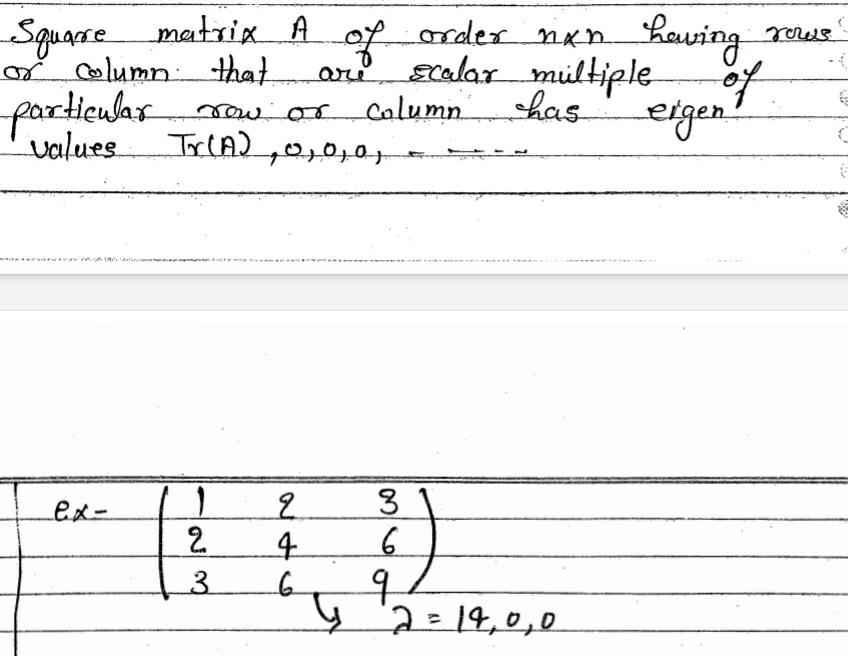 Square matrix A of order n×n having rows
or column that are scalar multiple of
particular row or column has eigen
values Tr(A), 0, 0, 0, - - - - -
ex- ( 1 2 3
2 4 6
3 6 9 )
↳ λ = 14, 0, 0